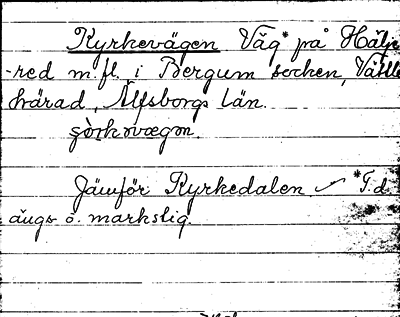 Kyrkevägen Väg* på Hälje
-red m.fl. i Bergum socken, Vättle
härad, Älfsborgs län.
Jämför Kyrkedalen *T.d.
ängs o. markslig.